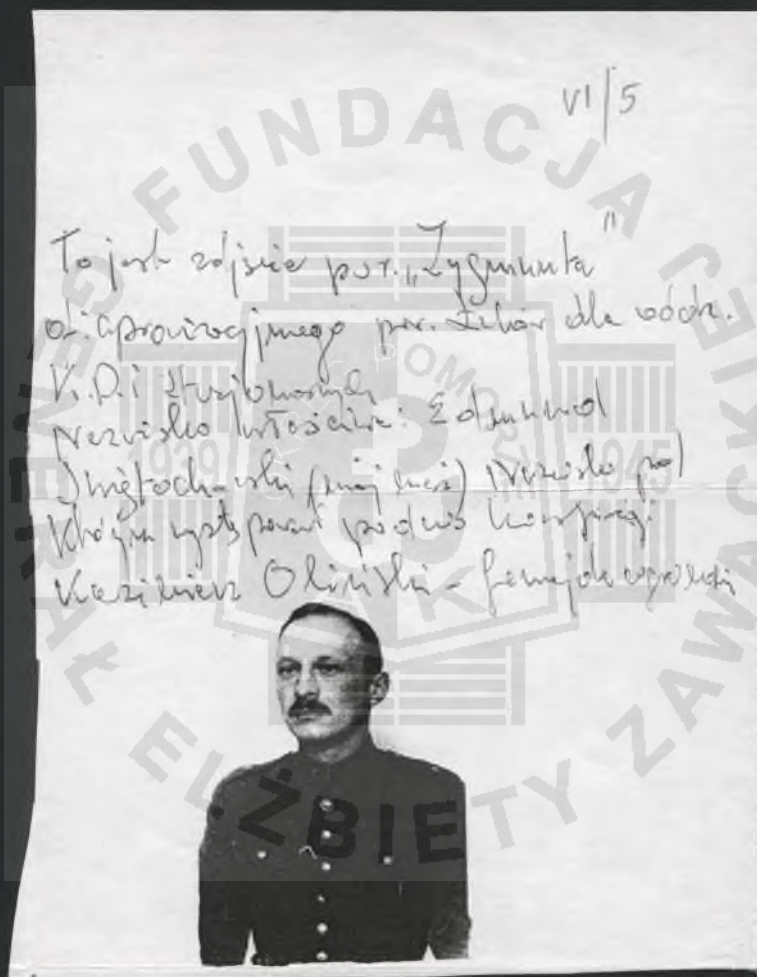 VI/5
To jest zdjęcie por. „Zygmunta"
of. aprowizacyjnego por. dla oddz.
K.D. i
Nazwisko właściwe: Edmund
Świętochowski (mój mąż) Nazwisko pod
którym występował podczas konspiracji
Kazimierz Oliński -
FUNDACJA GENERAŁ ELŻBIETY ZAWACKIEJ
POMORZE
1939 1945
AK